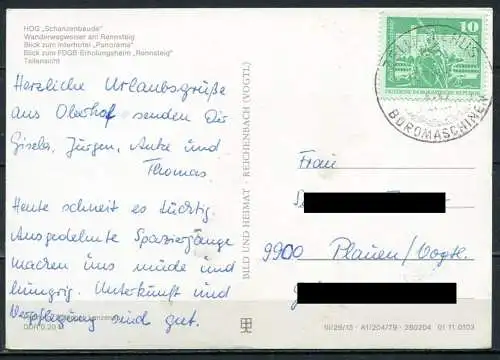 HOG „Schanzenbaude"
Wanderwegweiser am Rennsteig
Blick zum Interhotel „Panorama"
Blick zum FDGB-Erholungsheim „Rennsteig"
Teilansicht
Herzliche Urlaubsgrüße
aus Oberhof senden Dir
Gisela, Jürgen, Antre und
Thomas.
Heute schneit es tüchtig.
Ausgedehnte Spaziergänge
machen uns müde und
hungrig. Unterkunft und
Verpflegung sind gut.
DDR 0,20 M
BILD UND HEIMAT · REICHENBACH (VOGTL)
10
DEUTSCHE DEMOKRATISCHE REPUBLIK
BÜROMASCHINEN
Frau
9900 Plauen/Vogtl.
III/26/13 · A1/204/79 · 380204 01 11 0103